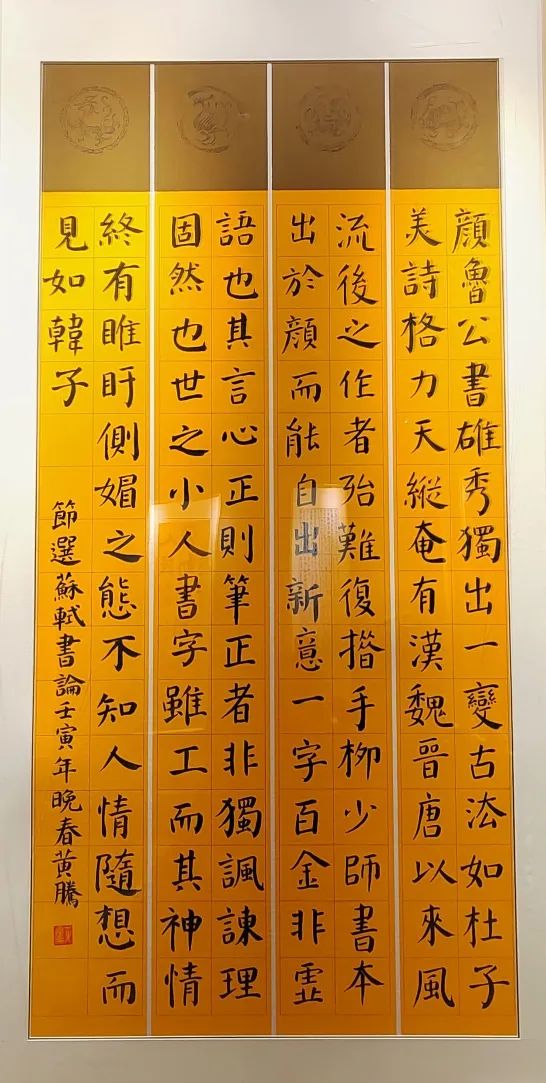 顔魯公書雄秀獨出一變古法如杜子
美詩格力天縱奄有漢魏晉唐以來風
流後之作者殆難復措手柳少師書本
出於顔而能自出新意一字百金非虛
語也其言心正則筆正者非獨諷諫理
固然也世之小人書字雖工而其神情
終有睢盱側媚之態不知人情隨想而
見如韓子
節選蘇軾書論壬寅年晚春黃騰